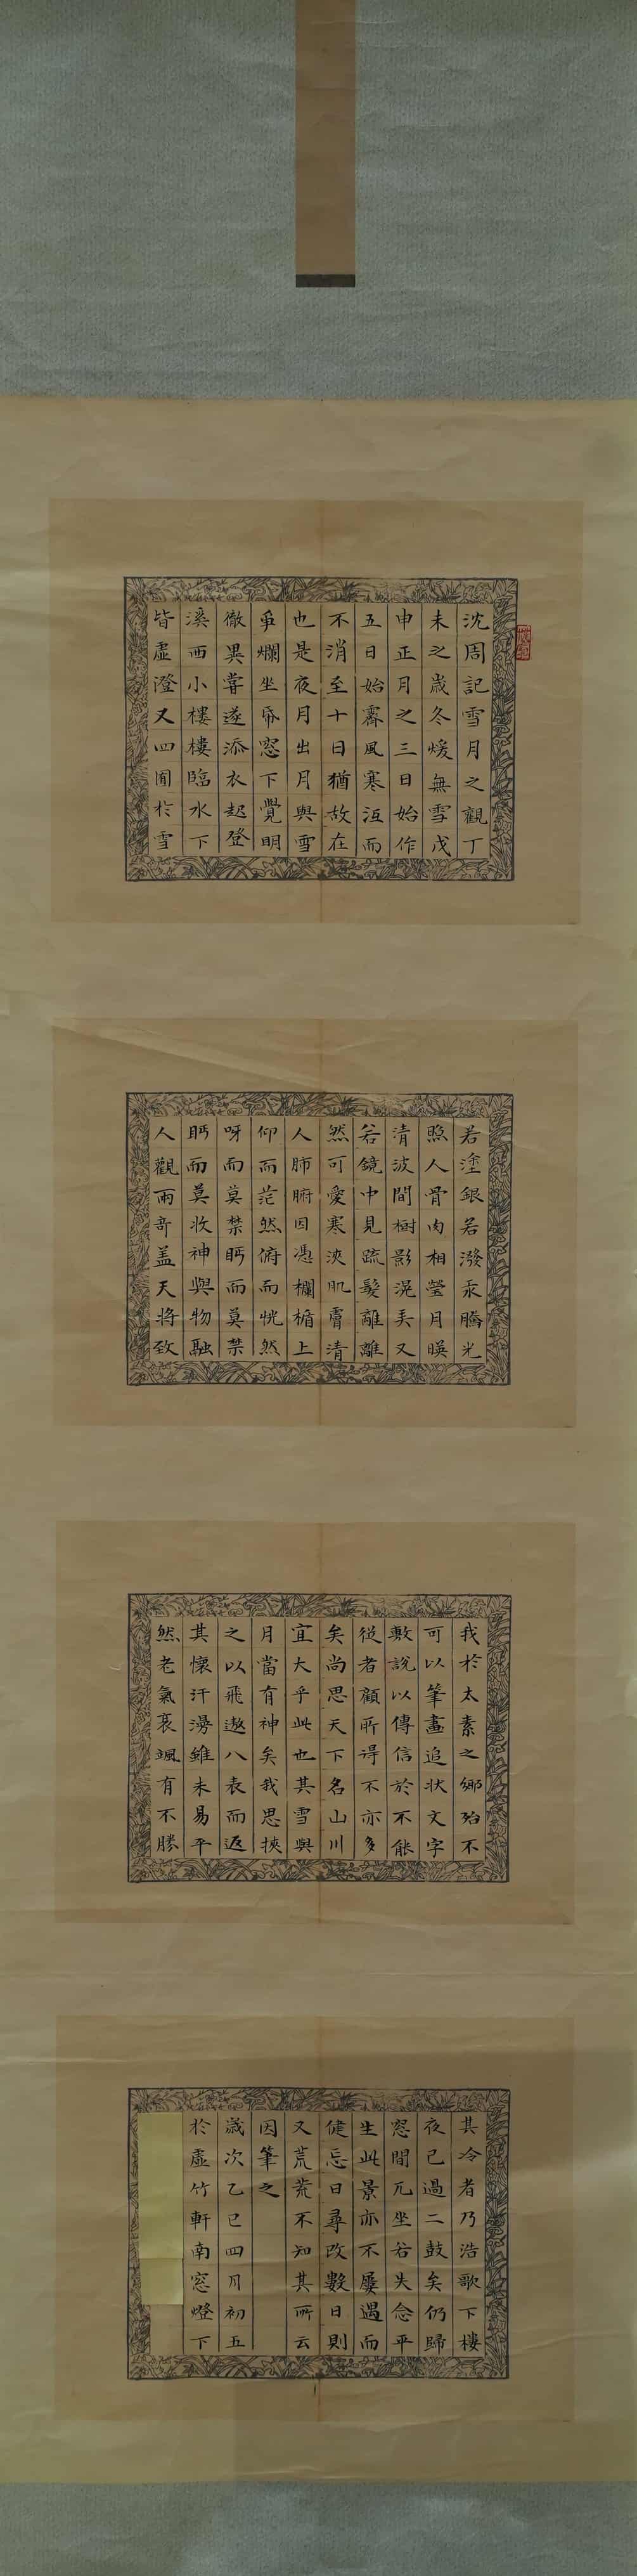 沈周記雪月之觀丁
未之歲冬煖無雪戊
申正月之三日始作
五日始霽風寒沍而
不消至十日猶故在
也是夜月出月與雪
爭爛坐帋窓下覺明
徹異嘗遂添衣起登
溪西小樓樓臨水下
皆虛澄又四囿於雪
若塗銀若潑汞騰光
照人骨肉相瑩月暎
清波間樹影滉弄又
若鏡中見疏髮離離
然可愛寒浹肌膚清
人肺腑因憑欄楯上
仰而茫然俯而恍然
呀而莫禁眄而莫禁
眄而莫收神與物融
人觀兩奇盖天將致
我於太素之鄉殆不
可以筆畫追狀文字
敷說以傳信於不能
從者顧所得不亦多
矣尚思天下名山川
宜大乎此也其雪與
月當有神矣我思挾
之以飛遨八表而返
其懷汗漫雖未易平
然老氣衰颯有不勝
其冷者乃浩歌下樓
夜已過二鼓矣仍歸
窓間兀坐若失念平
生此景亦不屢遇而
健忘日尋改數日則
又荒荒不知其所云
因筆之
歲次乙巳四月初五
於虛竹軒南窓燈下